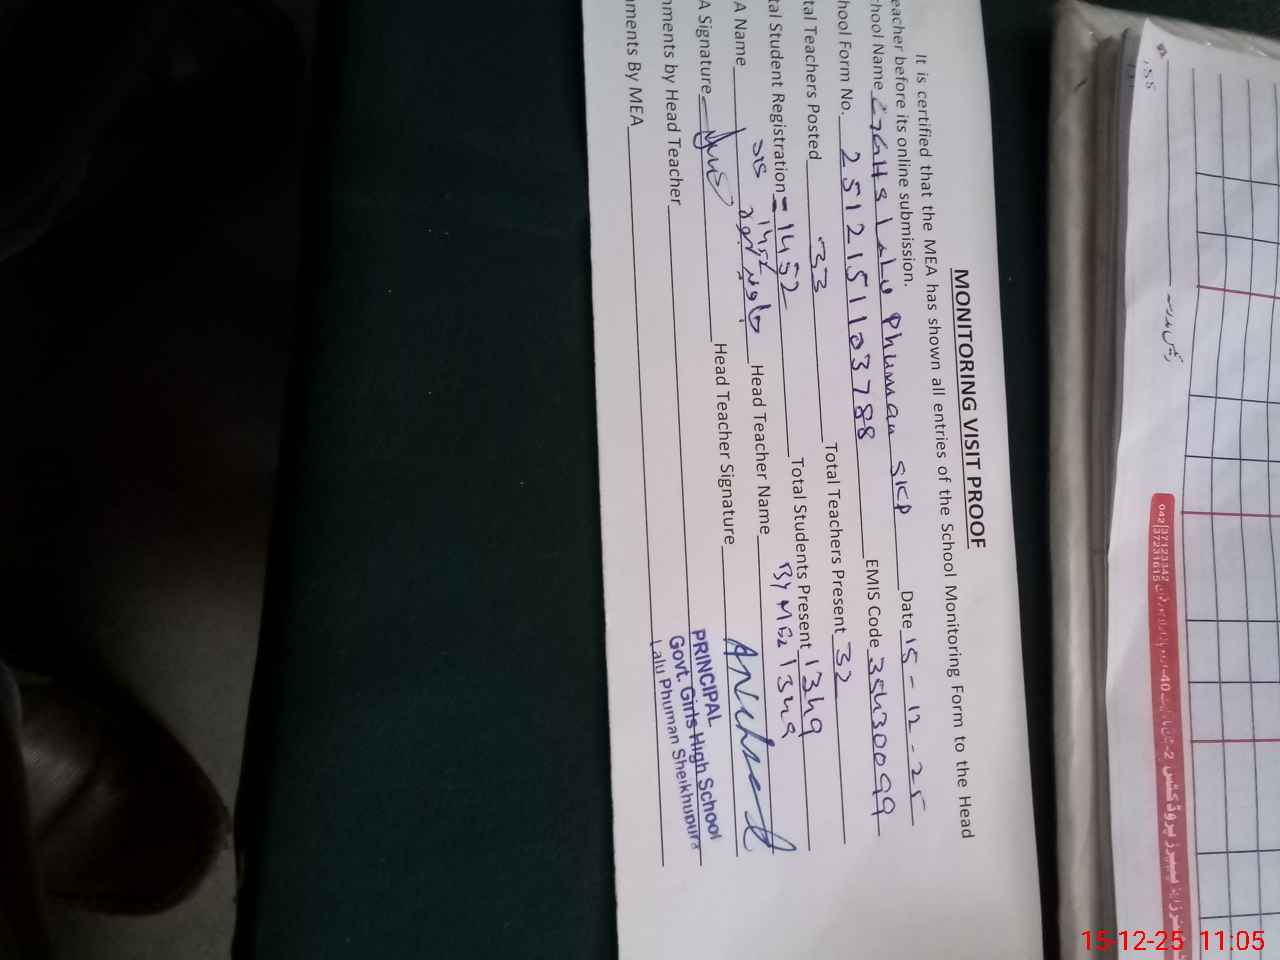 MONITORING VISIT PROOF
It is certified that the MEA has shown all entries of the School Monitoring Form to the Head
eacher before its online submission.
hool Name GGHS Lalu Phuman SKP Date 15-12-25
hool Form No. 2512151103788 EMIS Code 35430099
tal Teachers Posted 33 Total Teachers Present 32
tal Student Registration = 1452 Total Students Present 1349
SIS 1452 By MEA 1349
A Name Head Teacher Name
A Signature Head Teacher Signature
mments by Head Teacher
mments By MEA
PRINCIPAL
Govt. Girls High School
Lalu Phuman Sheikhupura
042 37123342
37231615
15-12-25 11:05